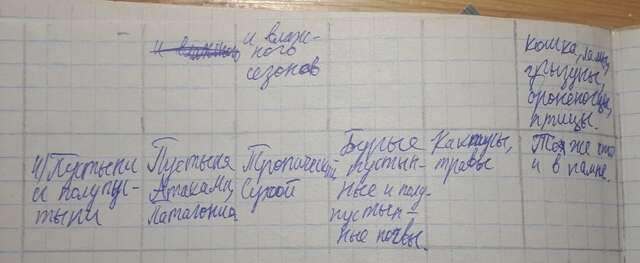 и влаж-
ного
сезонов
кошка, ламы,
грызуны,
броненосцы,
птицы.
4) Пустыни
и полупус-
тыни
Пустыня
Атакама,
Патагония
Тропический
Сухой
Бурые
пустын-
ные и полу-
пустын-
ные почвы.
Кактусы,
травы
То же что
и в пампе.